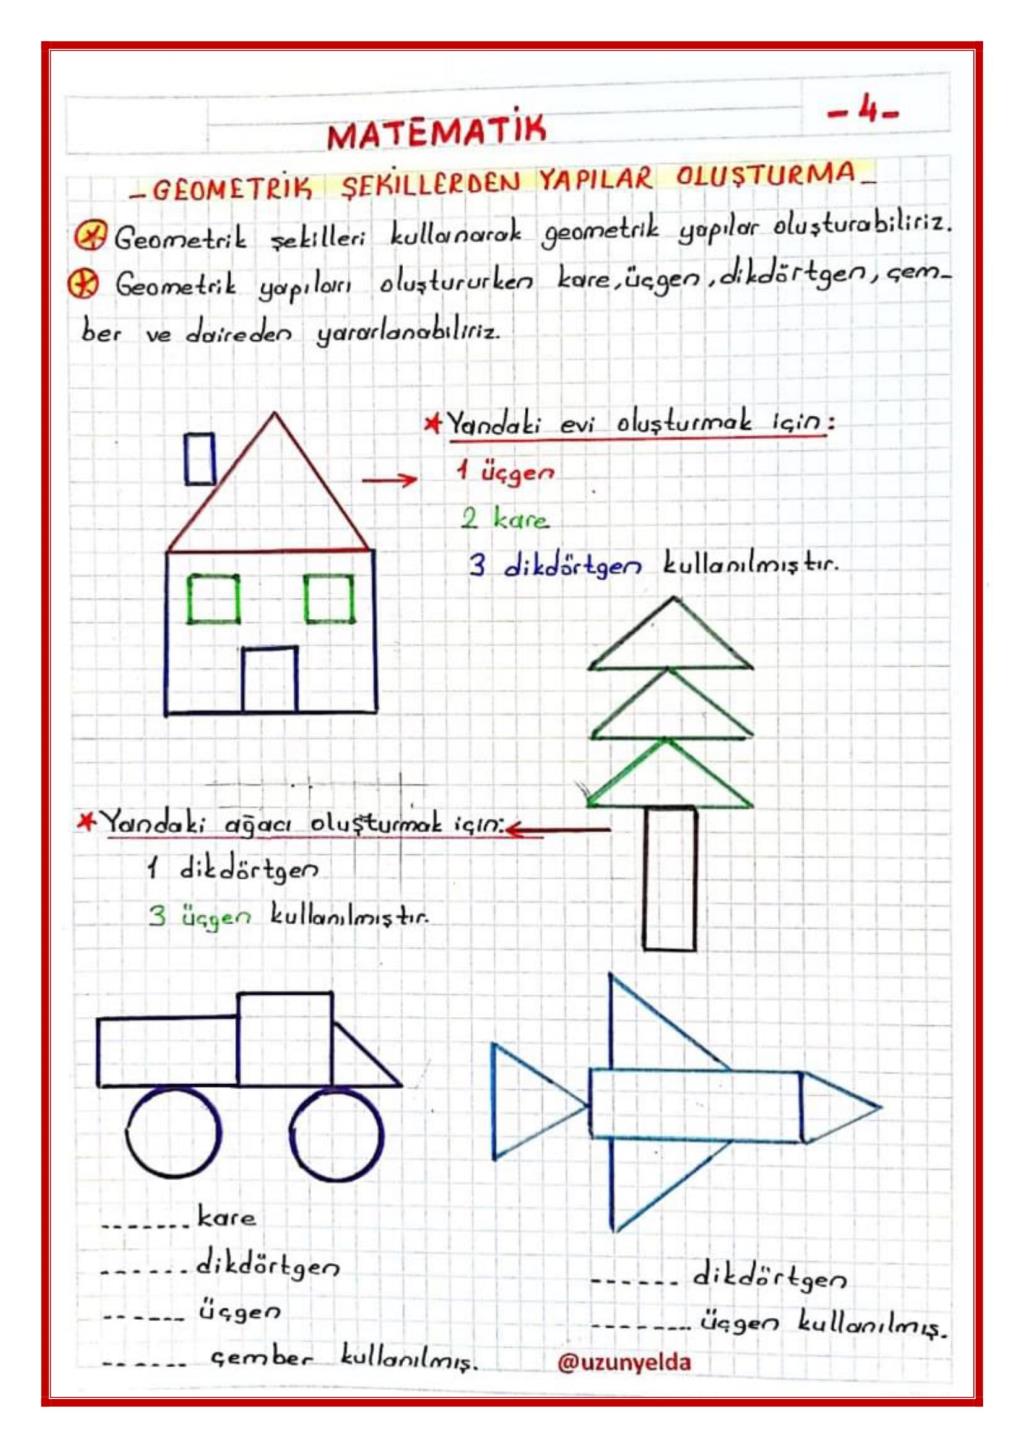 MATEMATİK
-4-
-GEOMETRİK ŞEKİLLERDEN YAPILAR OLUŞTURMA-
Geometrik şekilleri kullanarak geometrik yapılar oluşturabiliriz.
Geometrik yapıları oluştururken kare, üçgen, dikdörtgen, çem-
ber ve daireden yararlanabiliriz.
Yandaki evi oluşturmak için:
1 üçgen
2 kare
3 dikdörtgen kullanılmıştır.
Yandaki ağacı oluşturmak için:
1 dikdörtgen
3 üçgen kullanılmıştır.
------- kare
------- dikdörtgen
------ üçgen
------- çember kullanılmış.
------ dikdörtgen
-------- üçgen kullanılmış.
@uzunyelda